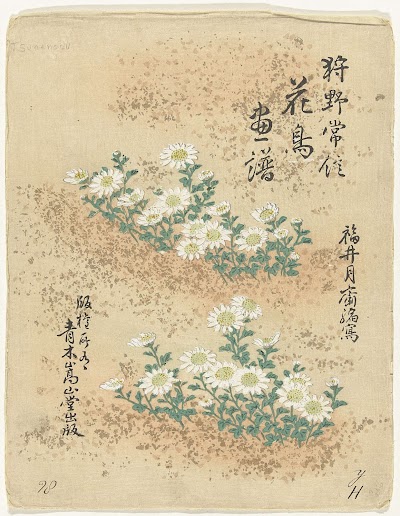 TSUNENOBU
狩野常信
花鳥
画譜
福井月斎編寫
版権所有
青木嵩山堂出版
98
y/H